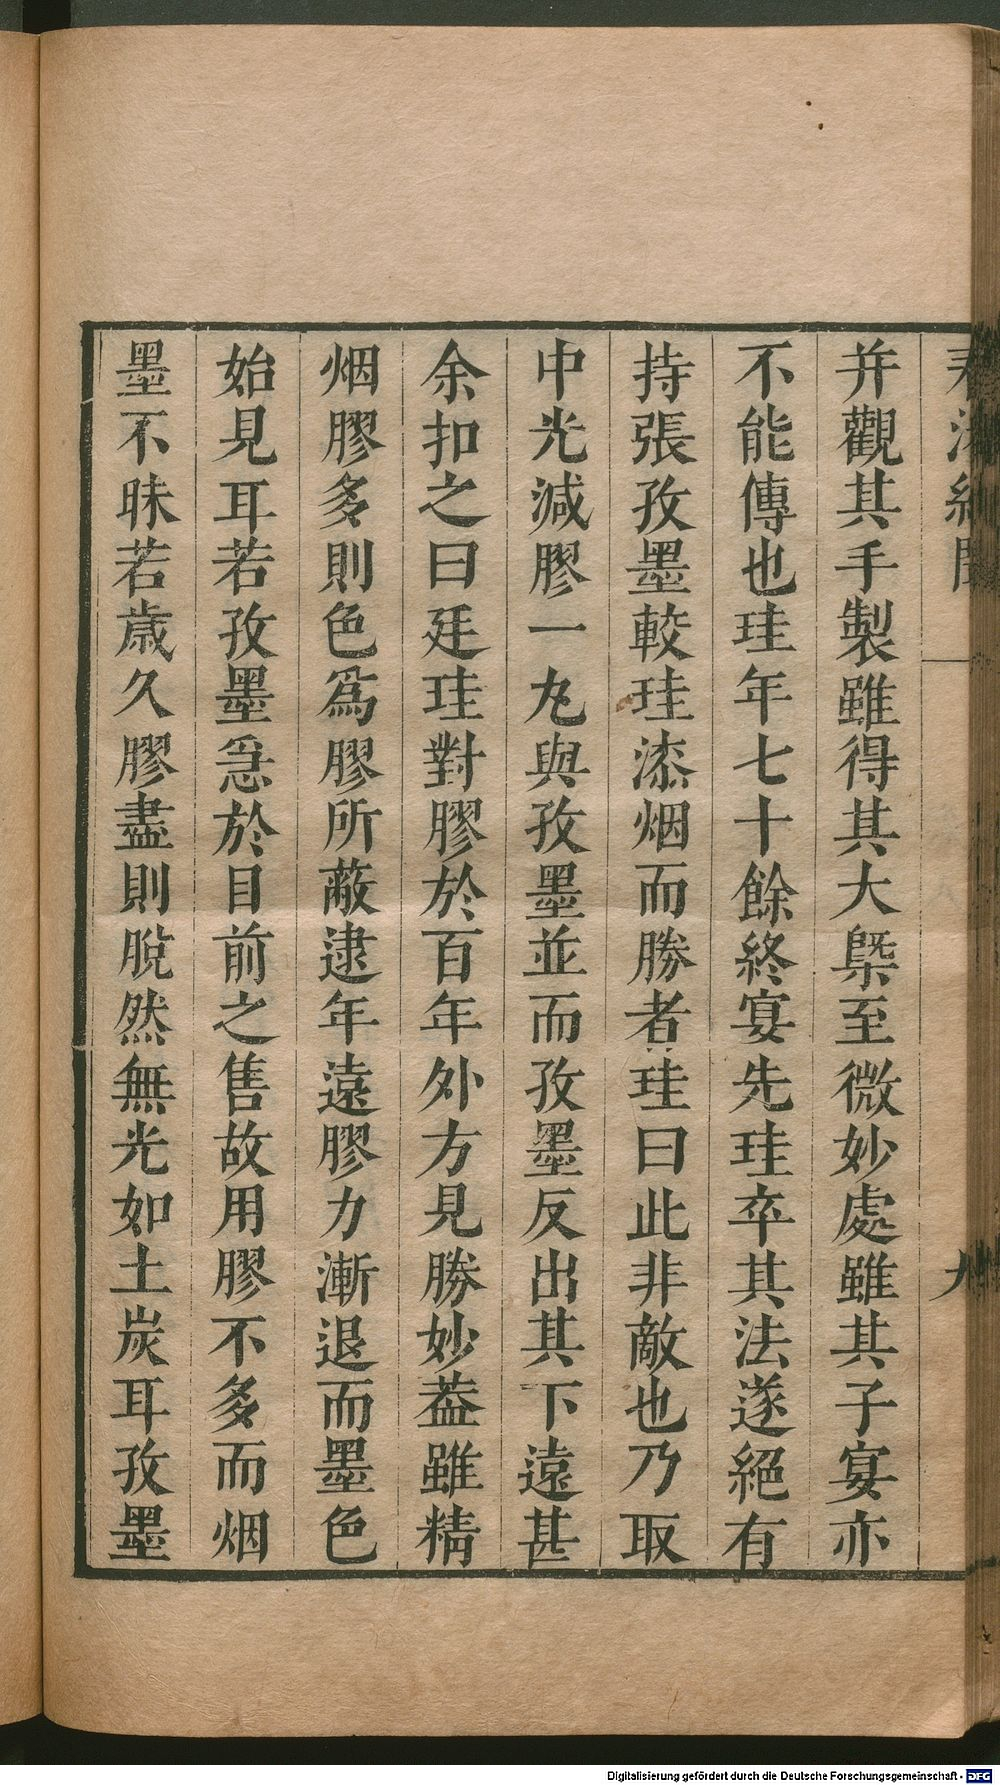 春渚紀聞
九
并觀其手製雖得其大槩至微妙處雖其子宴亦
不能傳也珪年七十餘終宴先珪卒其法遂絕有
持張孜墨較珪漆烟而勝者珪曰此非敵也乃取
中光減膠一丸與孜墨並而孜墨反出其下遠甚
余扣之曰廷珪對膠於百年外方見勝妙葢雖精
烟膠多則色爲膠所蔽逮年遠膠力漸退而墨色
始見耳若孜墨急於目前之售故用膠不多而烟
墨不昧若歳久膠盡則脫然無光如土炭耳孜墨
Digitalisierung gefördert durch die Deutsche Forschungsgemeinschaft - DFG